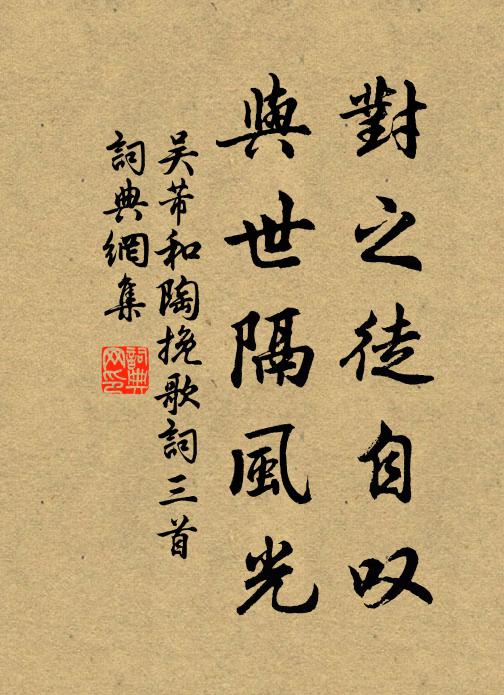 對之徒自叹
與世隔風光
吴芾和陶挽歌詞三首
詞典網集
詞典网印